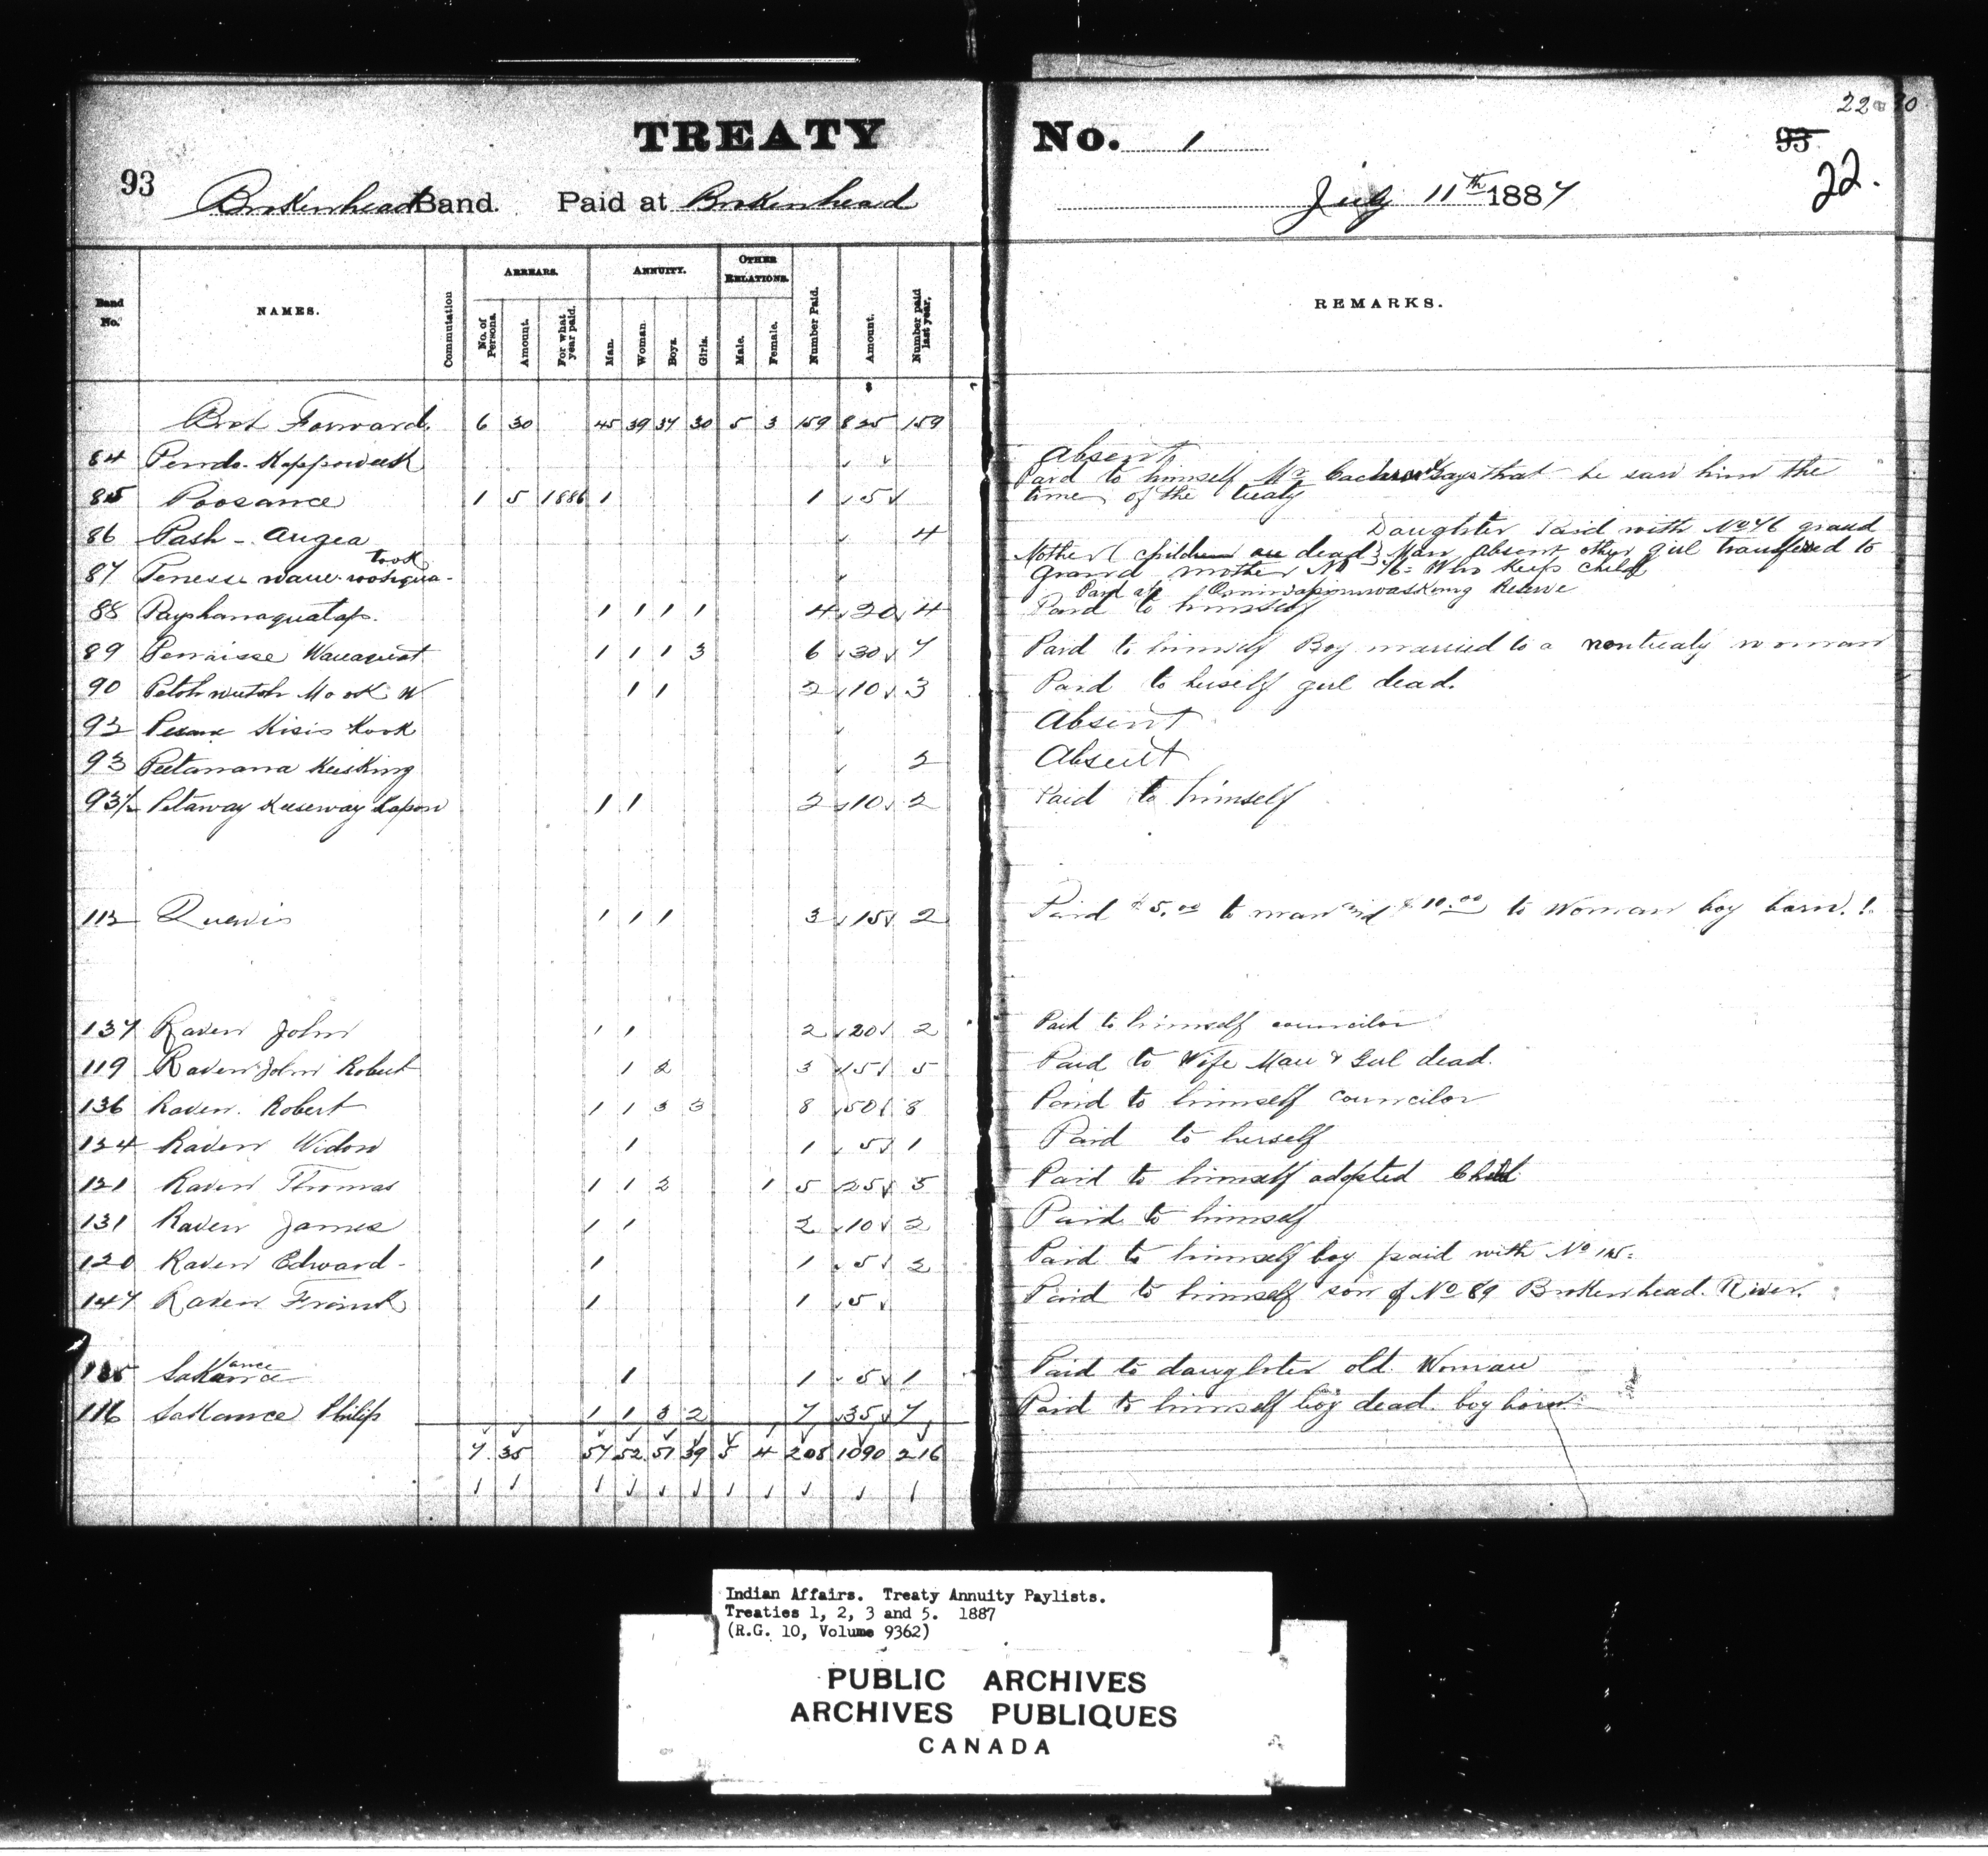 22 30
TREATY No. 1
93
93
22.
Brokenhead Band. Paid at Brokenhead July 11th 1887
Band No.
NAMES.
Commutation
ARREARS.
No. of Persons.
Amount.
For what year paid.
ANNUITY.
Man.
Woman.
Boys.
Girls.
OTHER RELATIONS.
Male.
Female.
Number Paid.
Amount.
Number paid last year.
REMARKS.
Brot Forward. 6 30 45 39 37 30 5 3 159 825 159
84 Pendo. Kappoweesk Absent
85 Poosance 1 5 1886 1 1 5 Paid to himself Mr says that he saw him the
time of the treaty
86 Pash-augea 4 Daughter Paid with No 76 grand
Mother (children are dead) Man absent other girl transferred to
87 Penesse Grand mother No 76 = Who keeps child
Paid at Reserve
88 Payshanaquatap. 1 1 1 1 4 20 4 Paid to himself
89 Penaisse Wauaquot 1 1 1 3 6 30 7 Paid to himself Boy married to a nontreaty woman
90 Petchwutch Mook W 1 1 2 10 3 Paid to herself girl dead.
92 Kisis Kook Absent
93 Peetanana Keesking 2 Absent
93½ Petaway Keeseway Capow 1 1 2 10 2 Paid to himself
112 Quewis 1 1 1 3 15 2 Paid $5.00 to man and $10.00 to Woman boy born. 1.
137 Raven John 1 1 2 20 2 Paid to himself councilor
119 Raven John Robert 1 2 3 15 5 Paid to Wife Man & Girl dead.
136 Raven. Robert 1 1 3 3 8 50 8 Paid to himself councilor
124 Raven Widow 1 1 5 1 Paid to herself
121 Raven Thomas 1 1 2 1 5 25 5 Paid to himself adopted Child
131 Raven James 1 1 2 10 2 Paid to himself
120 Raven Edward - 1 1 5 2 Paid to himself boy paid with No 145.
147 Raven Frank 1 1 5 Paid to himself son of No 89 Brokenhead River.
115 Sakance 1 1 5 1 Paid to daughter old Woman
116 Sakance Philip 1 1 3 2 7 35 7 Paid to himself boy dead. boy born
7 35 57 52 51 39 5 4 208 1090 216
Indian Affairs. Treaty Annuity Paylists.
Treaties 1, 2, 3 and 5. 1887
(R.G. 10, Volume 9362)
PUBLIC ARCHIVES
ARCHIVES PUBLIQUES
CANADA